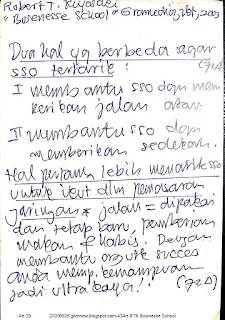 Robert T. Kiyosaki
"Businesse School" Gramedia, Jkt, 2003
Dua hal yg berbeda agar
sso tertarik: (72)
I membantu sso dgn mem
berikan jalan atau
II membantu sso dgn
memberikan sedekah.
Hal pertama lebih menarik sso
untuk ikut dlm pemasaran
jaringan * jalan = dipakai
dan tetap ban, pemberian
makan = habis. Dengan
membantu org utk succes
anda memp. kemampuan
jadi ultra kaya! (72)
Art 29 20200926 ghmnnw.blogspot.com-43Art RTK Businesse School